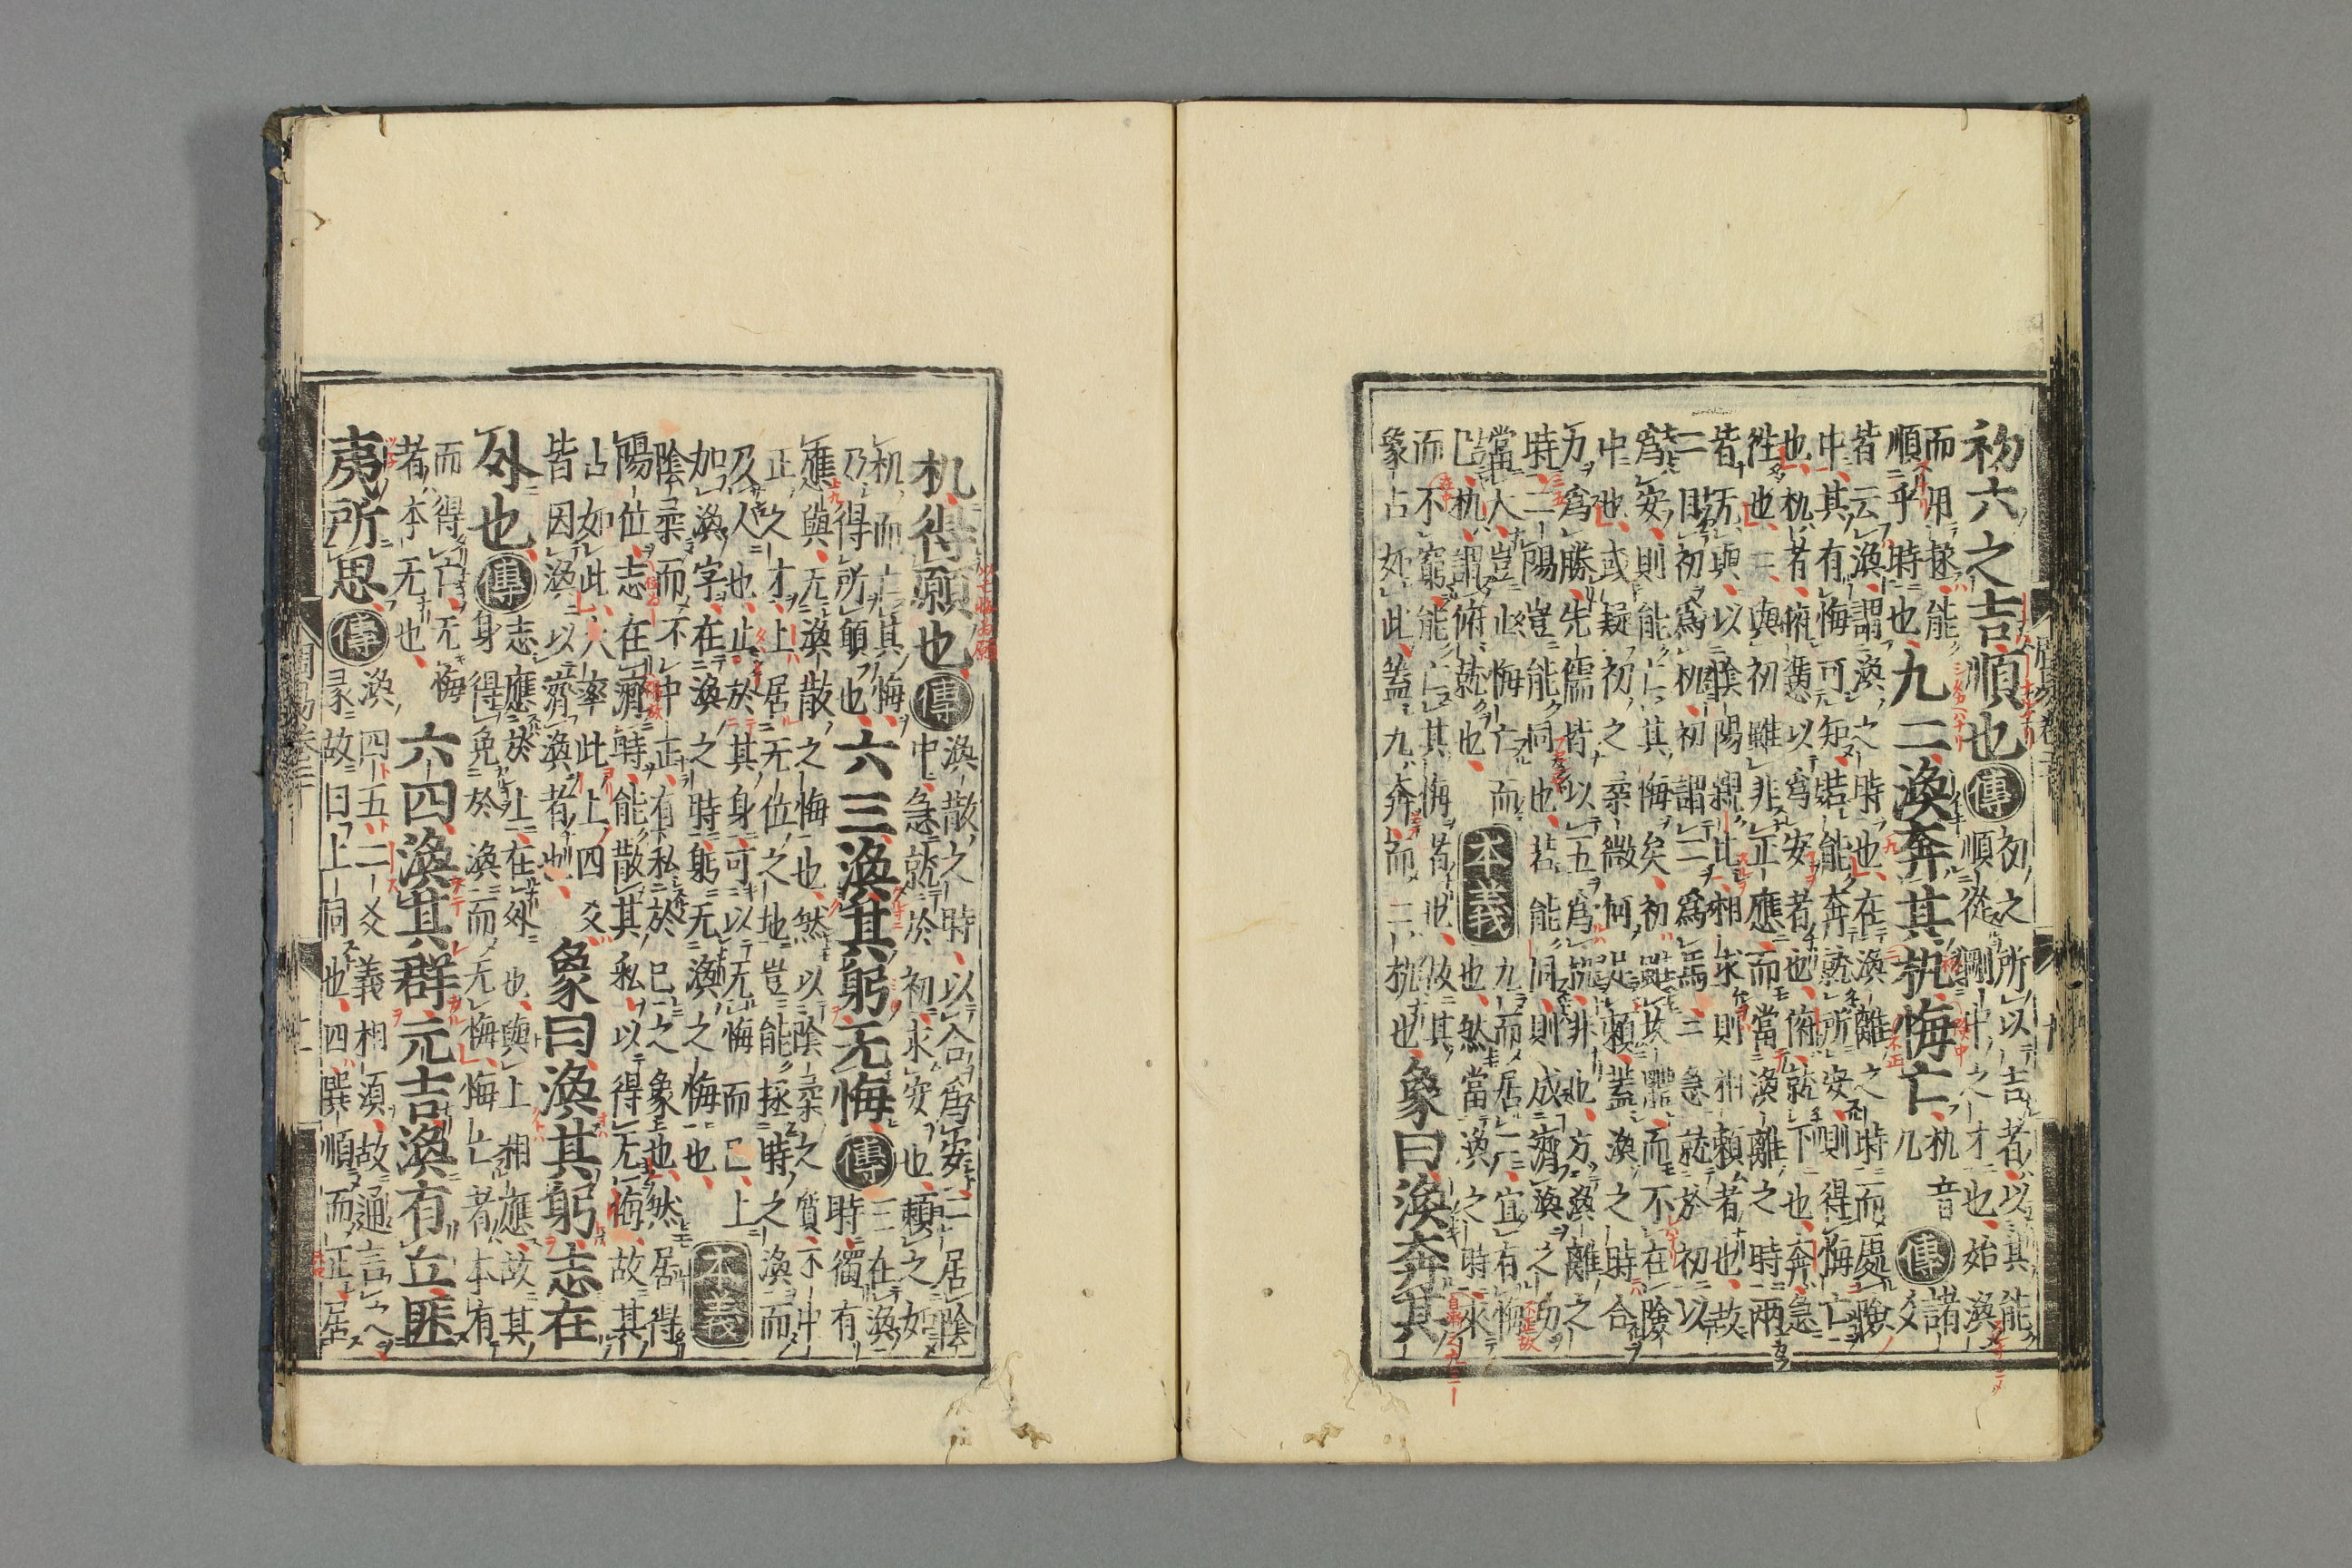 初六之吉順也傳初之所以吉者以其能
順從剛中之才也始渙
而用拯能
順乎時也九二渙奔其机悔亡机音
几傳諸
爻
皆云渙謂渙之時也在渙離之時而處險
中其有悔可知若能奔就所安則得悔亡
也机者俯憑以爲安者也俯就下也奔急
往也二與初雖非正應而當渙離之時兩
皆无與以陰陽親比相求則相賴者也故
二目初爲机初謂二爲馬二急就於初以
爲安則能亡其悔矣初雖坎體而不在險
中也或疑初之柔微何足賴蓋渙之時合
力爲勝先儒皆以五爲机非也方渙離之
時二陽豈能同也若能同則成濟渙之功
當大豈止悔亡而
已机謂俯就也本義九而居二宜有悔
也然當渙之時來
而不窮能亡其悔者也故其
象占如此蓋九奔而二机也象曰渙奔其
机得願也傳渙散之時以合爲安二居險
中急就於初求安也賴之如
机而亡其悔
乃得所願也六三渙其躬无悔傳三在渙
時獨有
應與无渙散之悔也然以陰柔之質不中
正之才上居无位之地豈能拯時之渙而
及人也止於其身可以无悔而已上
加渙字在渙之時躬无渙之悔也本義
陰柔而不中正有私於己之象也然居得
陽位志在濟時能散其私以得无悔故其
占如此大率此上四爻
皆因渙以濟渙者也象曰渙其躬志在
外也傳志應於上在外也與上相應故其
身得免於渙而无悔悔亡者本有
而得亡无悔
者本无也六四渙其群元吉渙有丘匪
夷所思傳渙四五二爻義相須故通言之
彖故曰上同也四巽順而正居